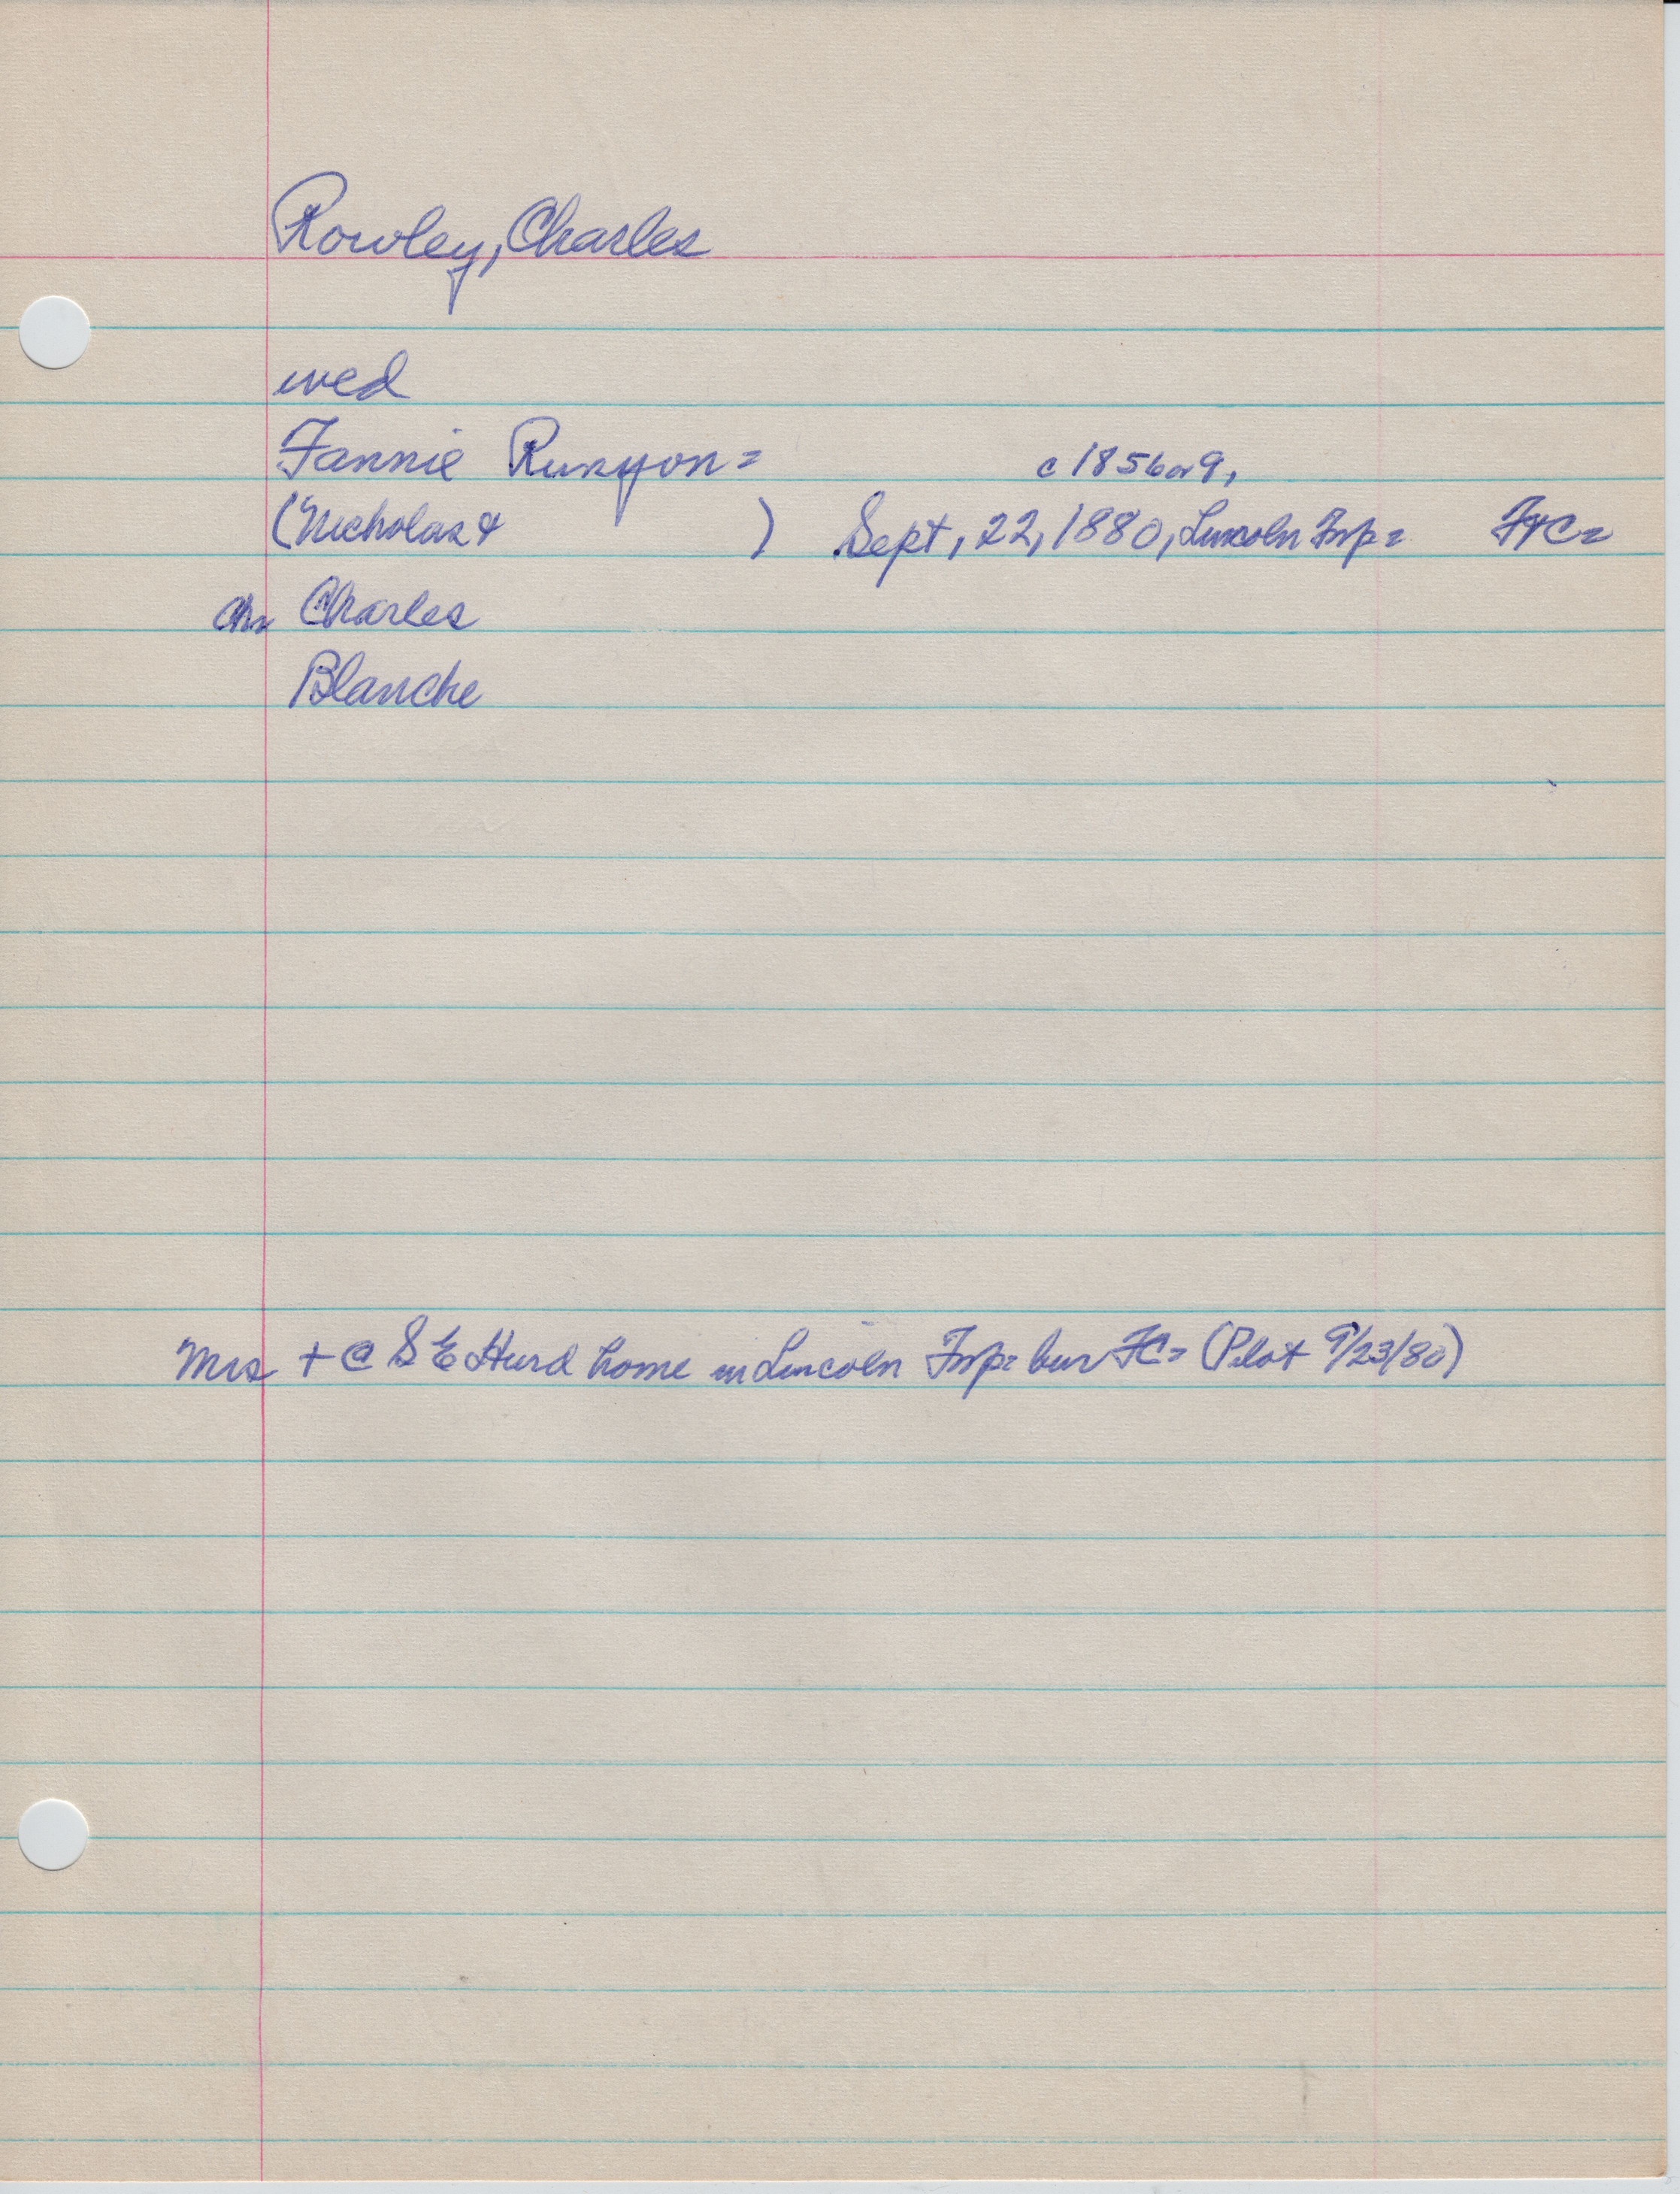 Rowley, Charles
wed
Fannie Runyon = c 1856 or 9,
(Nicholas & ) Sept, 22, 1880, Lincoln Twp = FC =
Chn Charles
Blanche
Mrs + @ S E Hurd home in Lincoln Twp = bur FC = (Pilot 9/23/80)